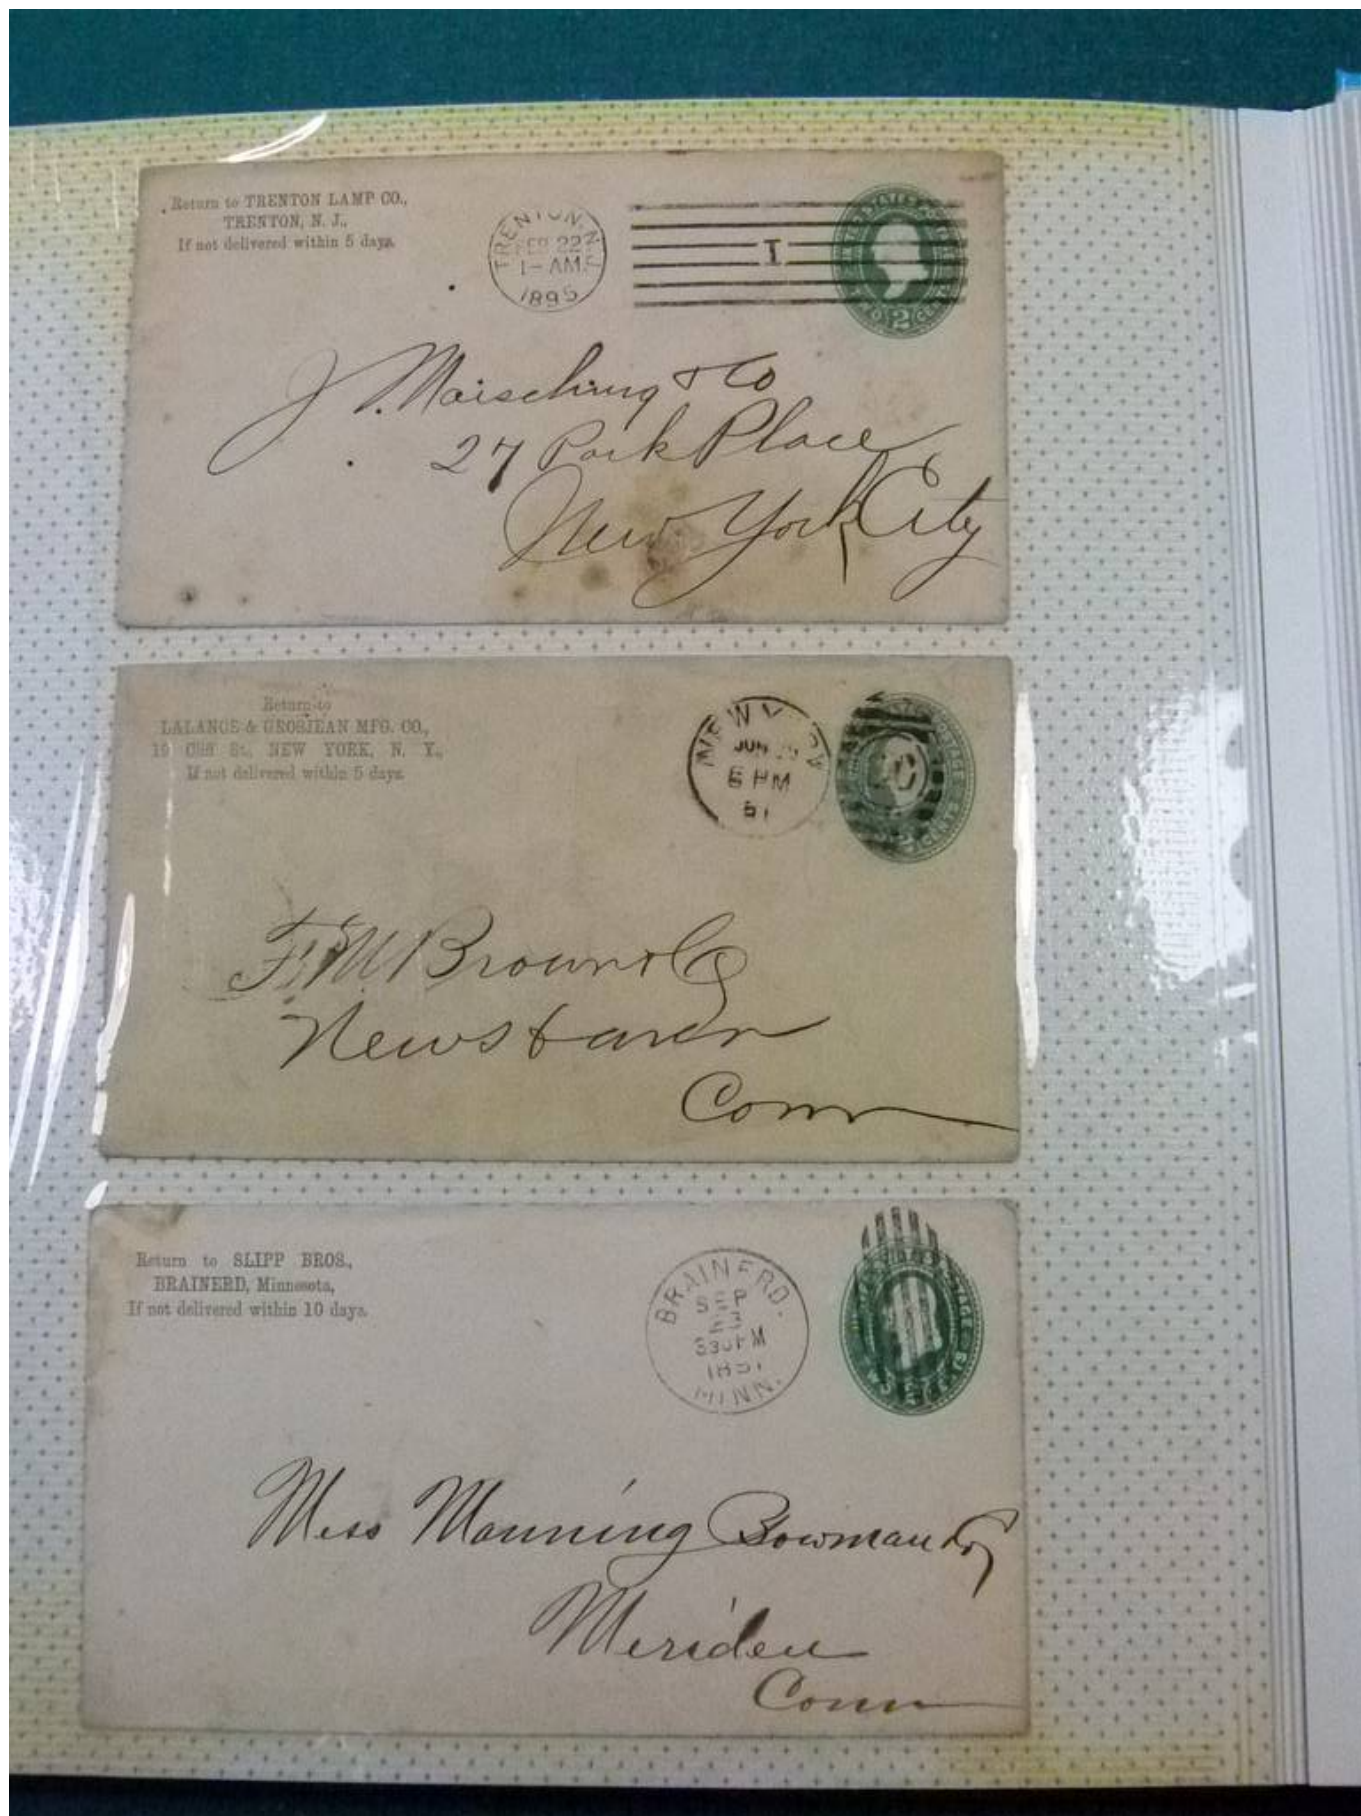 Return to TRENTON LAMP CO.,
TRENTON, N. J.,
If not delivered within 5 days.
TRENTON, N.J.
FEB 22
1-AM.
1895
I
UNITED STATES POSTAGE
TWO 2 CENTS
J. Maisching & Co
27 Park Place
New York City
Return to
LALANCE & GROSJEAN MFG. CO.,
19 Cliff St., NEW YORK, N. Y.,
If not delivered within 5 days.
NEW Y
JUN
6 PM
91
POSTAGE
CENTS
F. W. Brown & Co
New Haven
Conn
Return to SLIPP BROS.,
BRAINERD, Minnesota,
If not delivered within 10 days.
BRAINERD.
SEP
23
330PM
1891
MINN.
Mess Manning Bowman & Co
Meriden
Conn